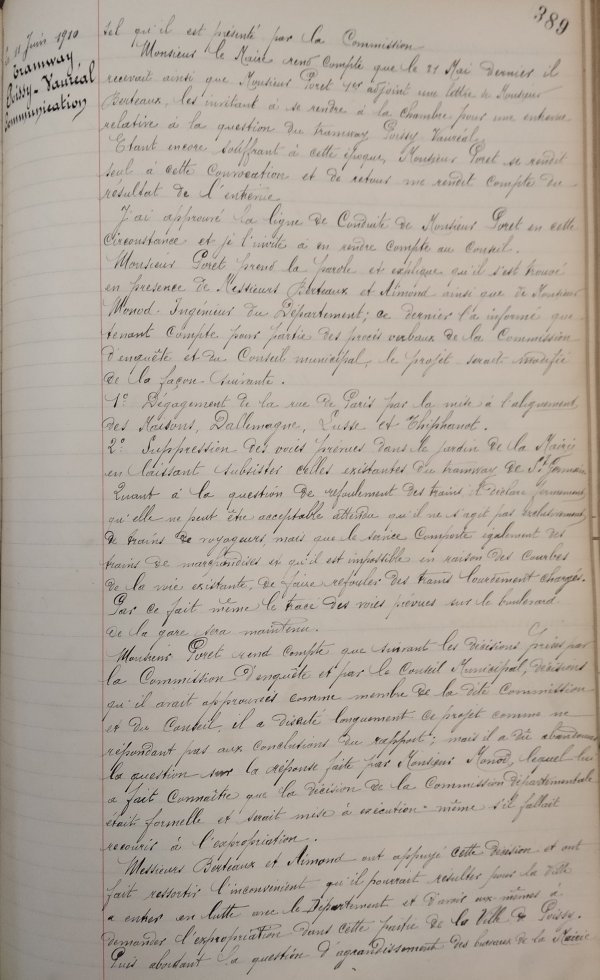 389
Le 11 Juin 1910
Tramway
Poissy-Vauréal
Communication
tel qu'il est présenté par la Commission
Monsieur le Maire rend compte que le 21 Mai dernier il
recevait ainsi que Monsieur Poret 1er adjoint une lettre de Monsieur
Berteaux, les invitant à se rendre à la chambre pour une entrevue
relative à la question du tramway Poissy Vauréal.
Etant encore souffrant à cette époque, Monsieur Poret se rendit
seul à cette convocation et de retour me rendit compte du
résultat de l'entrevue
J'ai approuvé la ligne de conduite de Monsieur Poret en cette
circonstance et je l'invite à en rendre compte au Conseil.
Monsieur Poret prend la parole et explique qu'il s'est trouvé
en présence de Messieurs Berteaux et Aimond ainsi que de Monsieur
Monod. Ingénieur du Département; ce dernier l'a informé que
tenant compte pour partie des procès verbaux de la Commission
d'enquête et du Conseil municipal, le projet serait modifié
de la façon suivante.
1º Dégagement de la rue de Paris par la mise à l'alignement
des Maisons, Dallemagne, Lusse et Thiphanot.
2º Suppression des voies prévues dans le jardin de la Mairie
en laissant subsister celles existantes du tramway de St Germain
Quant à la question de refoulement des trains, il déclare formellement
qu'elle ne peut être acceptable attendu qu'il ne s'agit pas exclusivement
de trains de voyageurs, mais que le service comporte également des
trains de marchandises et qu'il est impossible en raison des courbes
de la voie existante, de faire refouler des trains lourdement chargés.
Par ce fait même le tracé des voies prévues sur le boulevard
de la gare sera maintenu.
Monsieur Poret rend compte que suivant les décisions prises par
la Commission d'enquête et par le Conseil Municipal, décisions
qu'il avait approuvées comme membre de la dite Commission
et du Conseil, il a discuté longuement ce projet comme ne
répondant pas aux conclusions du rapport; mais il a dû abandonner
la question sur la réponse faite par Monsieur Monod, lequel lui
a fait connaître que la décision de la Commission Départementale
était formelle et serait mise à exécution même s'il fallait
recourir à l'expropriation.
Messieurs Berteaux et Aimond ont appuyé cette décision et ont
fait ressortir l'inconvénient qu'il pourrait résulter pour la Ville
a entrer en lutte avec le Département et d'avoir eux mêmes à
demander l'expropriation dans cette partie de la Ville de Poissy.
Puis abordant la question d'agrandissement des bureaux de la Mairie